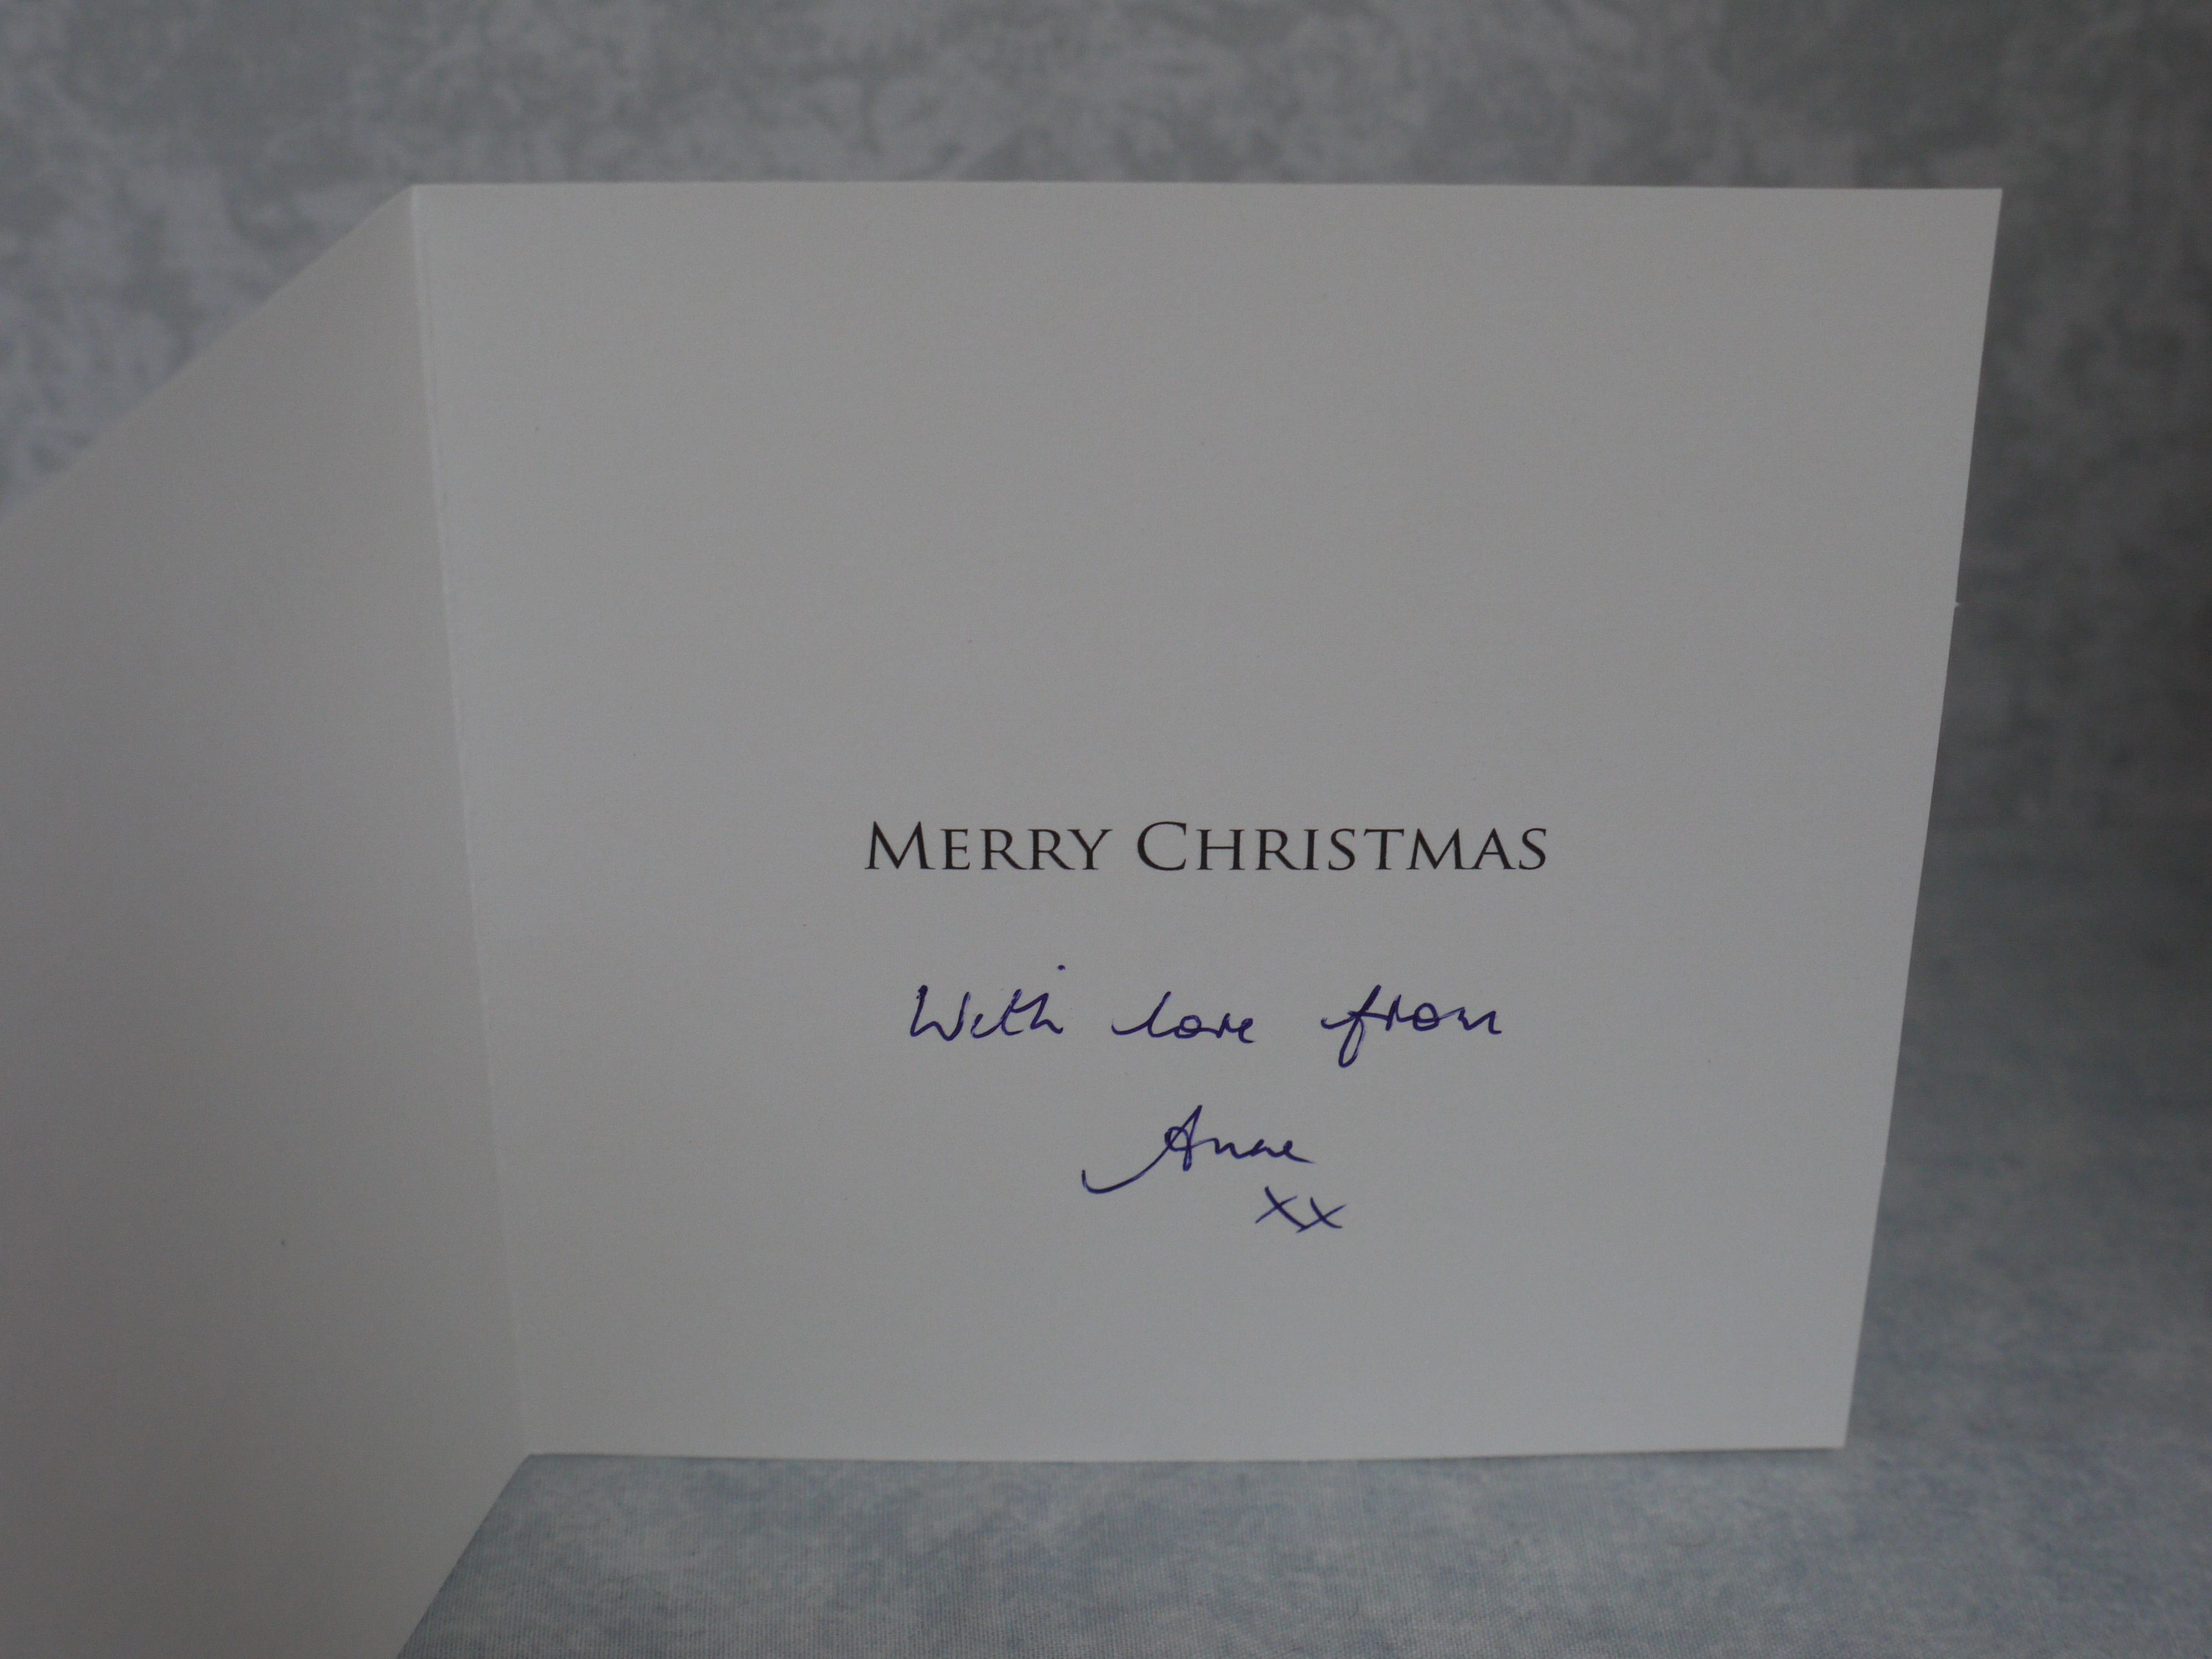 MERRY CHRISTMAS
With love from
Anne
xx